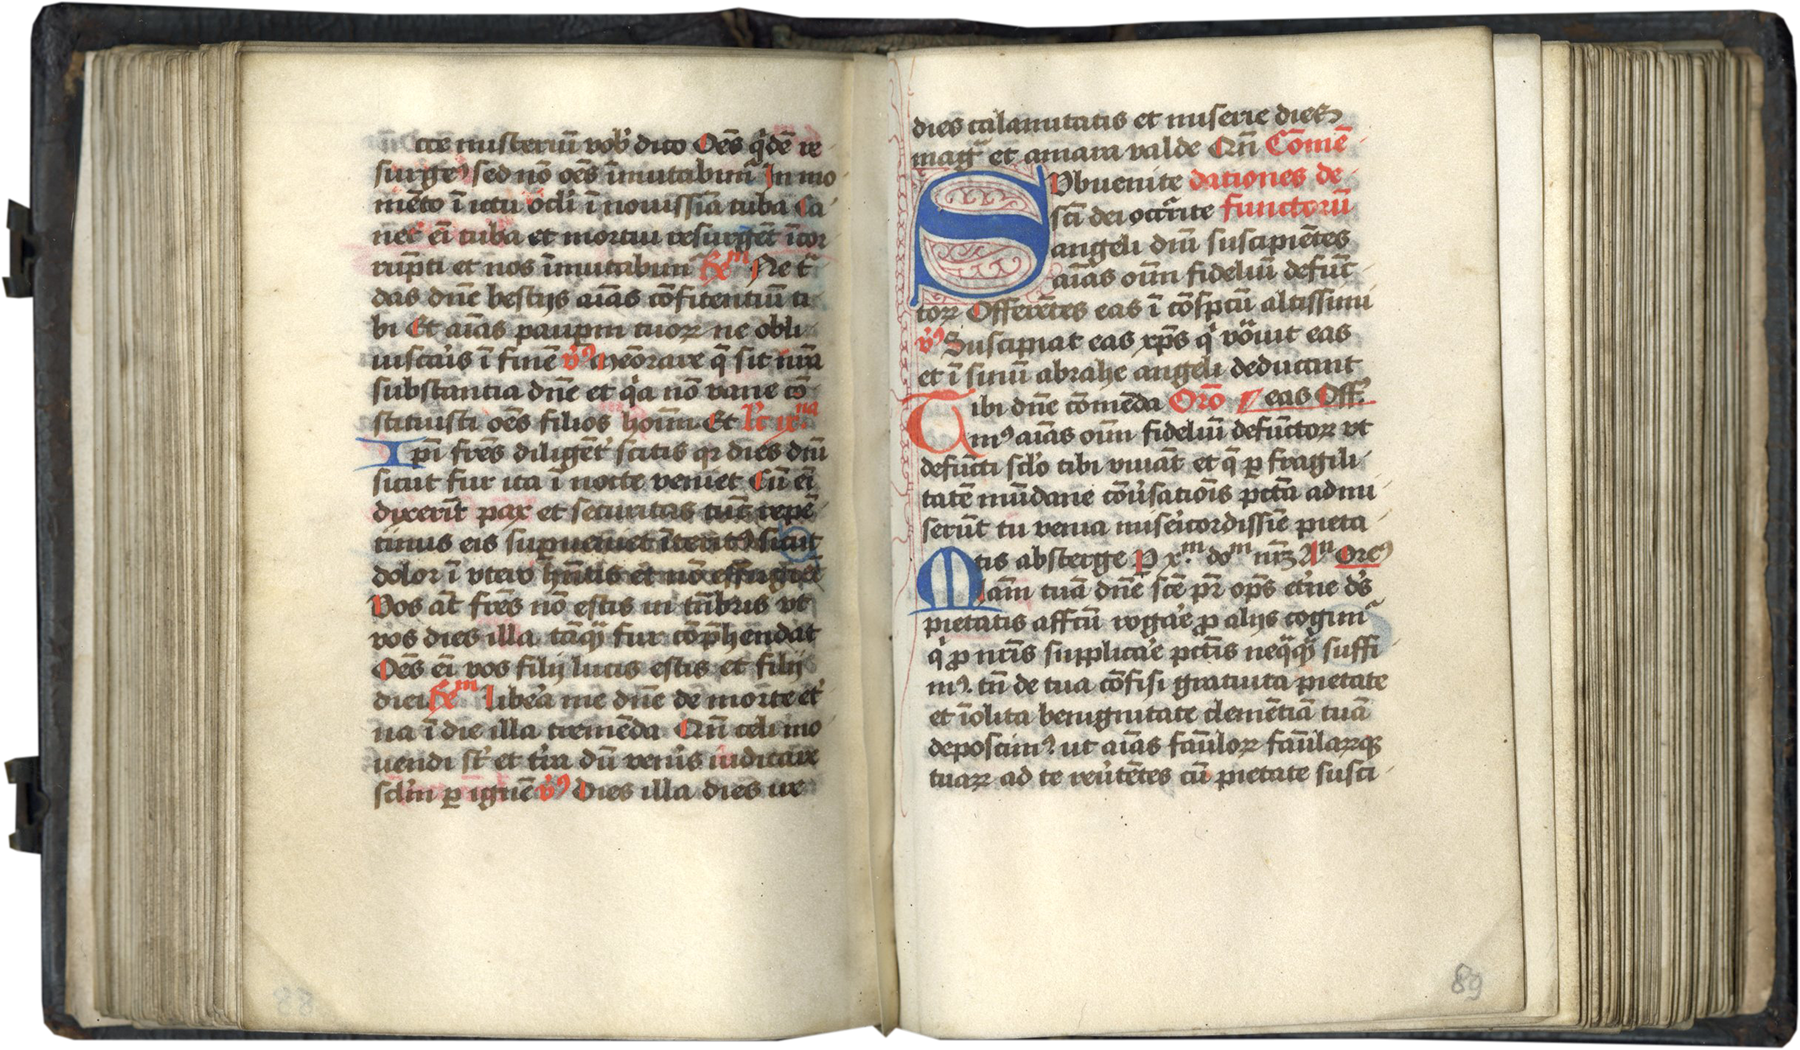 cce misteriū vob' dico Oēs q'dē re
surge' sed nō oēs īmutabim' In mo
mēto ī ictu ocl'i ī nouissīa tuba Ca
net' eī tuba et mortui resurgēt īcor
rupti et nos īmutabim' Rm Ne t'
das dn̄e bestijs aīas cōfitentiū ti
bi Et aīas paupm tuoꝝ ne obli
uiscaris ī finē v' Meōrare q̄ sit mea
substantia dn̄e et q'a nō vane cō
stituisti oēs filios hoīm Et Lc ixna
Ipi frēs diligēt' scitis qr dies dnī
sicut fur ita ī nocte veniet Cū eī
dixerīt pax et securitas tūc repē
tinus eis supueniet īterit' sicut
dolor ī vtero hn̄tis et nō effugiēt
Vos at̄ frēs nō estis in tn̄bris vt
vos dies illa tāq̄ fur cōp̄hendat
Oēs eī vos filij lucis estis et filij
diei Rm Libera me dn̄e de morte et'
na ī die illa tremēda Qn̄ celi mo
uendi st' et t'ra dū ven'is iudicare
scl'm ꝑ ignē v' Dies illa dies ire
dies calamitatis et miserie dies
mag' et amara valde Qn̄ Cōmē
Subuenite dationes de
scī dei occ'rite functorū
angeli dnī suscipiētes
aīas oīm fideliū defūc
toꝝ Offerētes eas ī cōspctū altissimi
v' Suscipiat eas xp̄s q' vōuit eas
et ī sinū abrahe angeli deducant
Tibi dn̄e cōmēda Orō eas Off'
m' aīas oīm fideliū defūctoꝝ vt
defūcti scl'o tibi viuāt et q̄ ꝑ fragili
tatē mūdane cōu'satiōis pctā admi
serūt tu venia miser'icordissīe pieta
tis absterge P xm dom nr̄m An Ore'
Mlām tuā dn̄e scē pr̄ op̄s et'ne d's
pietatis affctū rogar'e ꝓ alijs cogim'
q' ꝓ nr̄is supplicar'e pctīs neq̄q̄ suffi
m'. tn̄ de tua cōfisi gratuita pietate
et īolita benignitate clemētiā tuā
deposcim' ut aīas fāuloꝝ fāularꝝq;
tuaꝝ ad te reu'tētes cū pietate susci
89